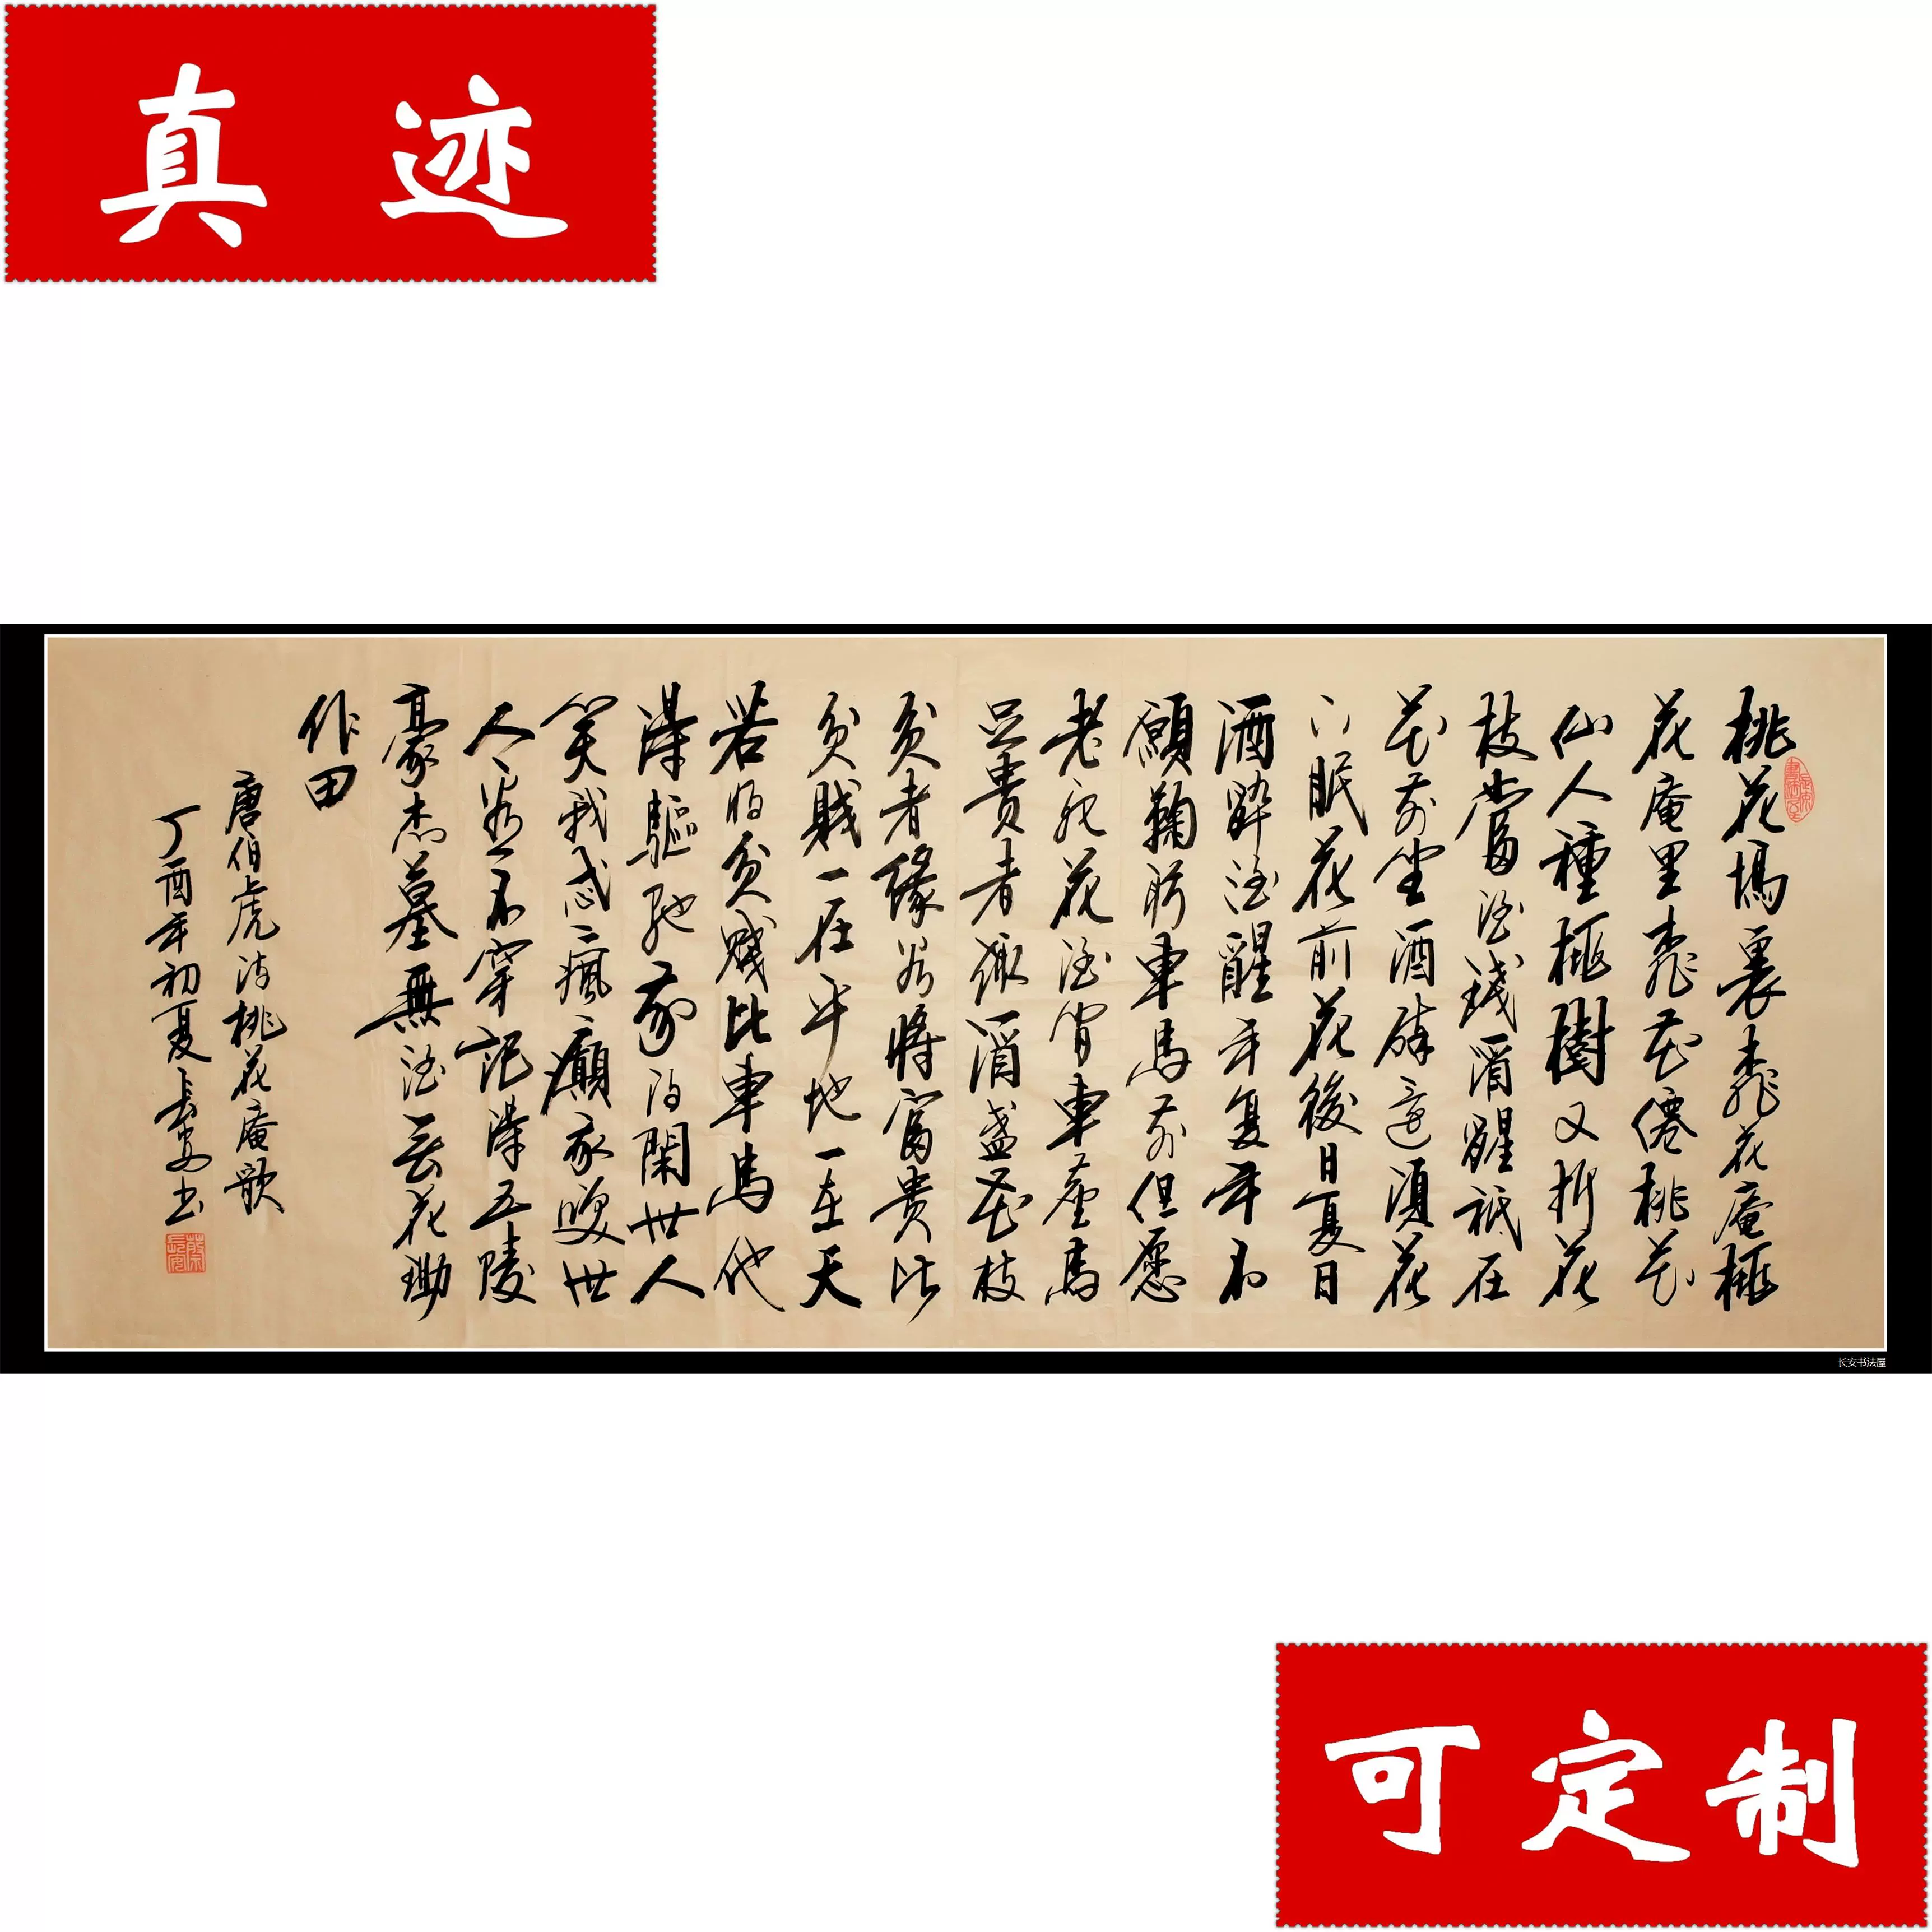 真迹
桃花塢裏桃花庵桃
花庵里桃花僊桃花
仙人種桃樹又折花
枝當酒錢酒醒祇在
花前坐酒醉還須花
下眠花前花後日夏日
酒醉酒醒年复年不
願鞠躬車馬前但愿
老死花酒間車塵馬
足貴者趣酒盞花枝
貧者緣若將富貴比
貧賤一在平地一在天
若將貧賤比車馬他
得驅馳我得閑世人
笑我忒瘋癲我笑世
人看不穿記得五陵
豪杰墓無酒無花鋤
作田
唐伯虎诗桃花庵歌
丁酉年初夏长安书
长安书法屋
可定制